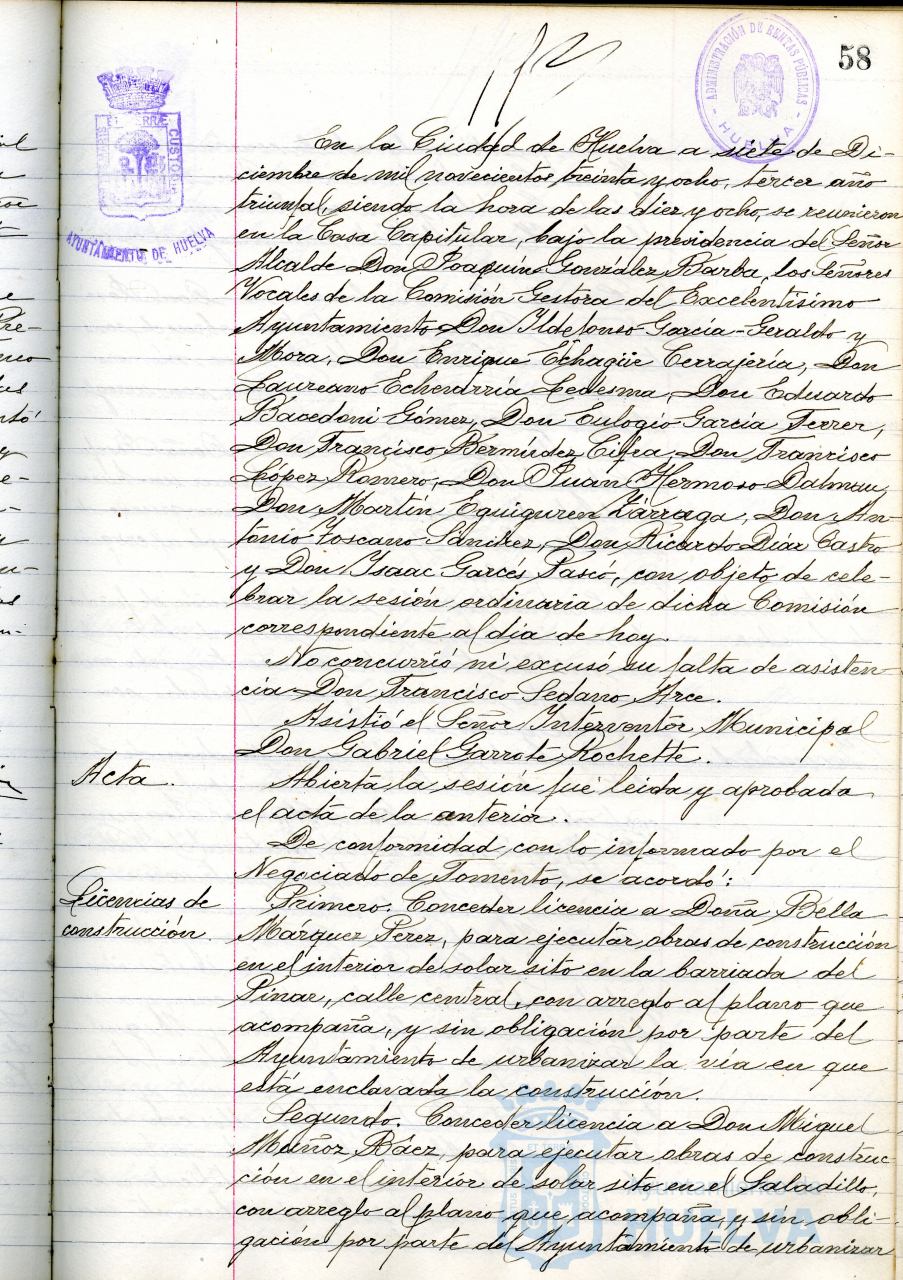 58
ADMINISTRACIÓN DE RENTAS PÚBLICAS
HUELVA
PORTUS MARIS ET TERRÆ CUSTODIA
AYUNTAMIENTO DE HUELVA
En la Ciudad de Huelva a siete de Di-
ciembre de mil novecientos treinta y ocho, tercer año
triunfal, siendo la hora de las diez y ocho, se reunieron
en la Casa Capitular, bajo la presidencia del Señor
Alcalde Don Joaquín González Barba, los Señores
Vocales de la Comisión Gestora del Excelentísimo
Ayuntamiento Don Ildefonso García-Geraldo y
Mora, Don Enrique Echagüe Cerrajería, Don
Laureano Echevarría Ledesma, Don Eduardo
Bacedoni Gómez, Don Eulogio García Ferrer,
Don Francisco Bermúdez Cifra, Don Francisco
López Romero, Don Juan Hermoso Dalmau,
Don Martín Eguiguren Zárraga, Don An-
tonio Toscano Sánchez, Don Ricardo Díaz Castro
y Don Isaac Garcés Pascó, con objeto de cele-
brar la sesión ordinaria de dicha Comisión
correspondiente al día de hoy.
No concurrió ni excusó su falta de asisten-
cia Don Francisco Sedano Arce.
Asistió el Señor Interventor Municipal
Don Gabriel Garrote Rochette.
Acta.
Abierta la sesión fué leída y aprobada
el acta de la anterior.
De conformidad con lo informado por el
Negociado de Fomento, se acordó:
Licencias de
construcción.
Primero. Conceder licencia a Doña Bella
Márquez Perez, para ejecutar obras de construcción
en el interior de solar sito en la barriada del
Pinar, calle central, con arreglo al plano que
acompaña, y sin obligación por parte del
Ayuntamiento de urbanizar la vía en que
está enclavada la construcción.
Segundo. Conceder licencia a Don Miguel
Muñoz Báez, para ejecutar obras de construc-
ción en el interior de solar sito en el Saladillo,
con arreglo al plano que acompaña, y sin obli-
gación por parte del Ayuntamiento de urbanizar
Ayuntamiento de
HUELVA